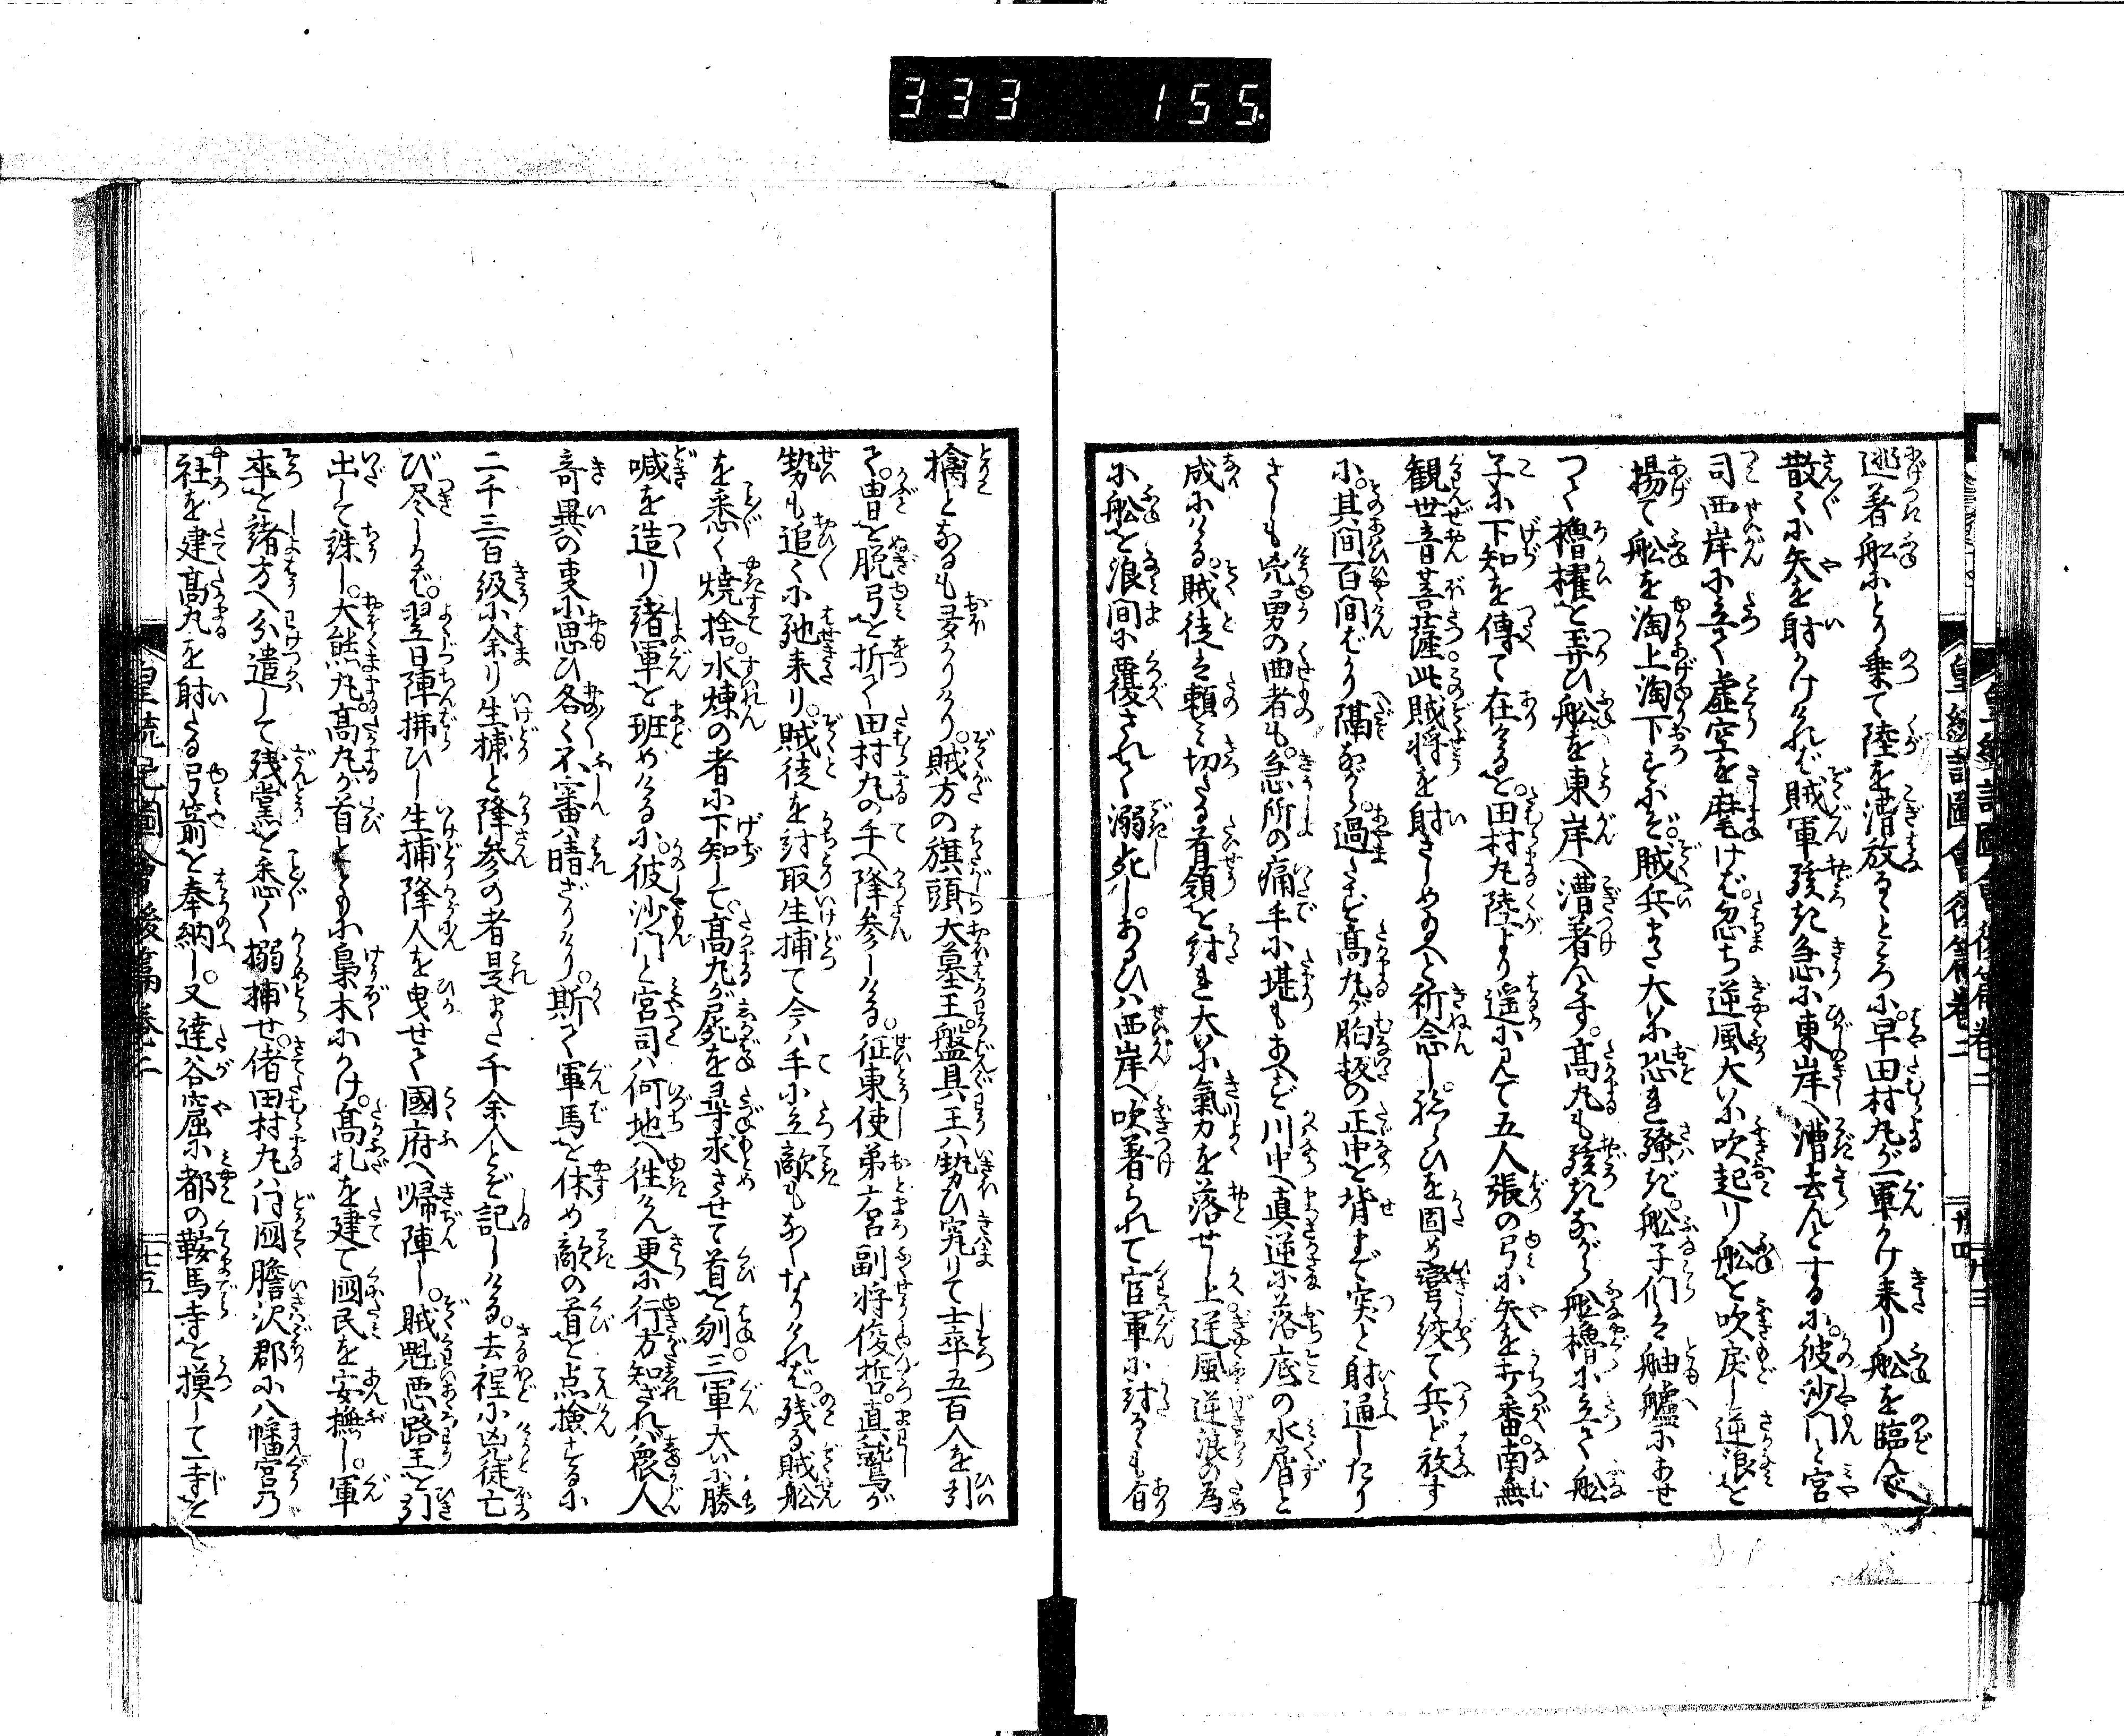 333 155
皇統記圖會後篇巻二
逃着舩にとり乗て陸を漕放るところに早田村丸が一軍かけ来り舩を臨んで
散〻に矢を射かけれバ賊軍駭き急に東岸へ漕去んとするに彼沙門と宮
司西岸に立て虚空を麾けバ忽ち逆風大いに吹起り舩を吹戻し逆浪を
揚て舩を淘上淘下すにぞ賊兵また大いに恐れ騒ぎ舩子們ハ舳艫にあせ
つて櫓櫂を弄ひ舩を東岸へ漕着んす髙丸も駭きながら舩櫓に立て舩
子に下知を傳て在けるを田村丸陸より遥に見て五人張の弓に矢を打番南無
観世音菩薩此賊将を射さしめ給へと祈念し祢らひを固め彎絞て兵ど放す
に其間百間ばかり隔ながら過たず髙丸が胸板の正中を背まで突と射通したり
さしも兇勇の曲者も急所の痛手に堪もあへず川中へ真逆に落底の水屑と
成にける賊徒ハ頼み切たる首領を討れ大いに氣力を落せし上逆風逆浪の為
に舩を浪間に覆されて溺死しあるひハ西岸へ吹着られて官軍に討るゝも有
擒となるも多かりけり賊方の旗頭大墓王盤具王ハ勢ひ究りて士卒五百人を引
て冑を脱弓を折て田村丸の手へ降参しける征東使弟麿副将俊哲真鷲が
勢も追〻に馳来り賊徒を討取生捕て今ハ手に立敵もなくなりけれバ残る賊舩
を悉く焼捨水煉の者に下知して髙丸が屍を尋求させて首を刎三軍大いに勝
喊を造り諸軍を班めけるに彼沙门と宮司ハ何地へ徃けん更に行方知ざれバ衆人
竒異の叓に思ひ各〻不審ハ晴ざりけり斯て軍馬を休め敵の首を点撿するに
二千三百級に余り生捕と降参の者是また千余人とぞ記しける去程に兇徒亡
び尽しかバ翌日陣拂ひし生捕降人を曳せて國府へ帰陣し賊魁悪路王を引
出して誅し大熊丸髙丸が首とともに梟木にかけ髙札を建て國民を安撫し軍
卒を諸方へ分遣して残黨を悉く搦捕せ偖田村丸ハ同國膽沢郡に八幡宮乃
社を建髙丸を射たる弓箭を奉納し又達谷窟に都の鞍馬寺を摸して一寺を
皇統記圖會後篇巻二
廿五